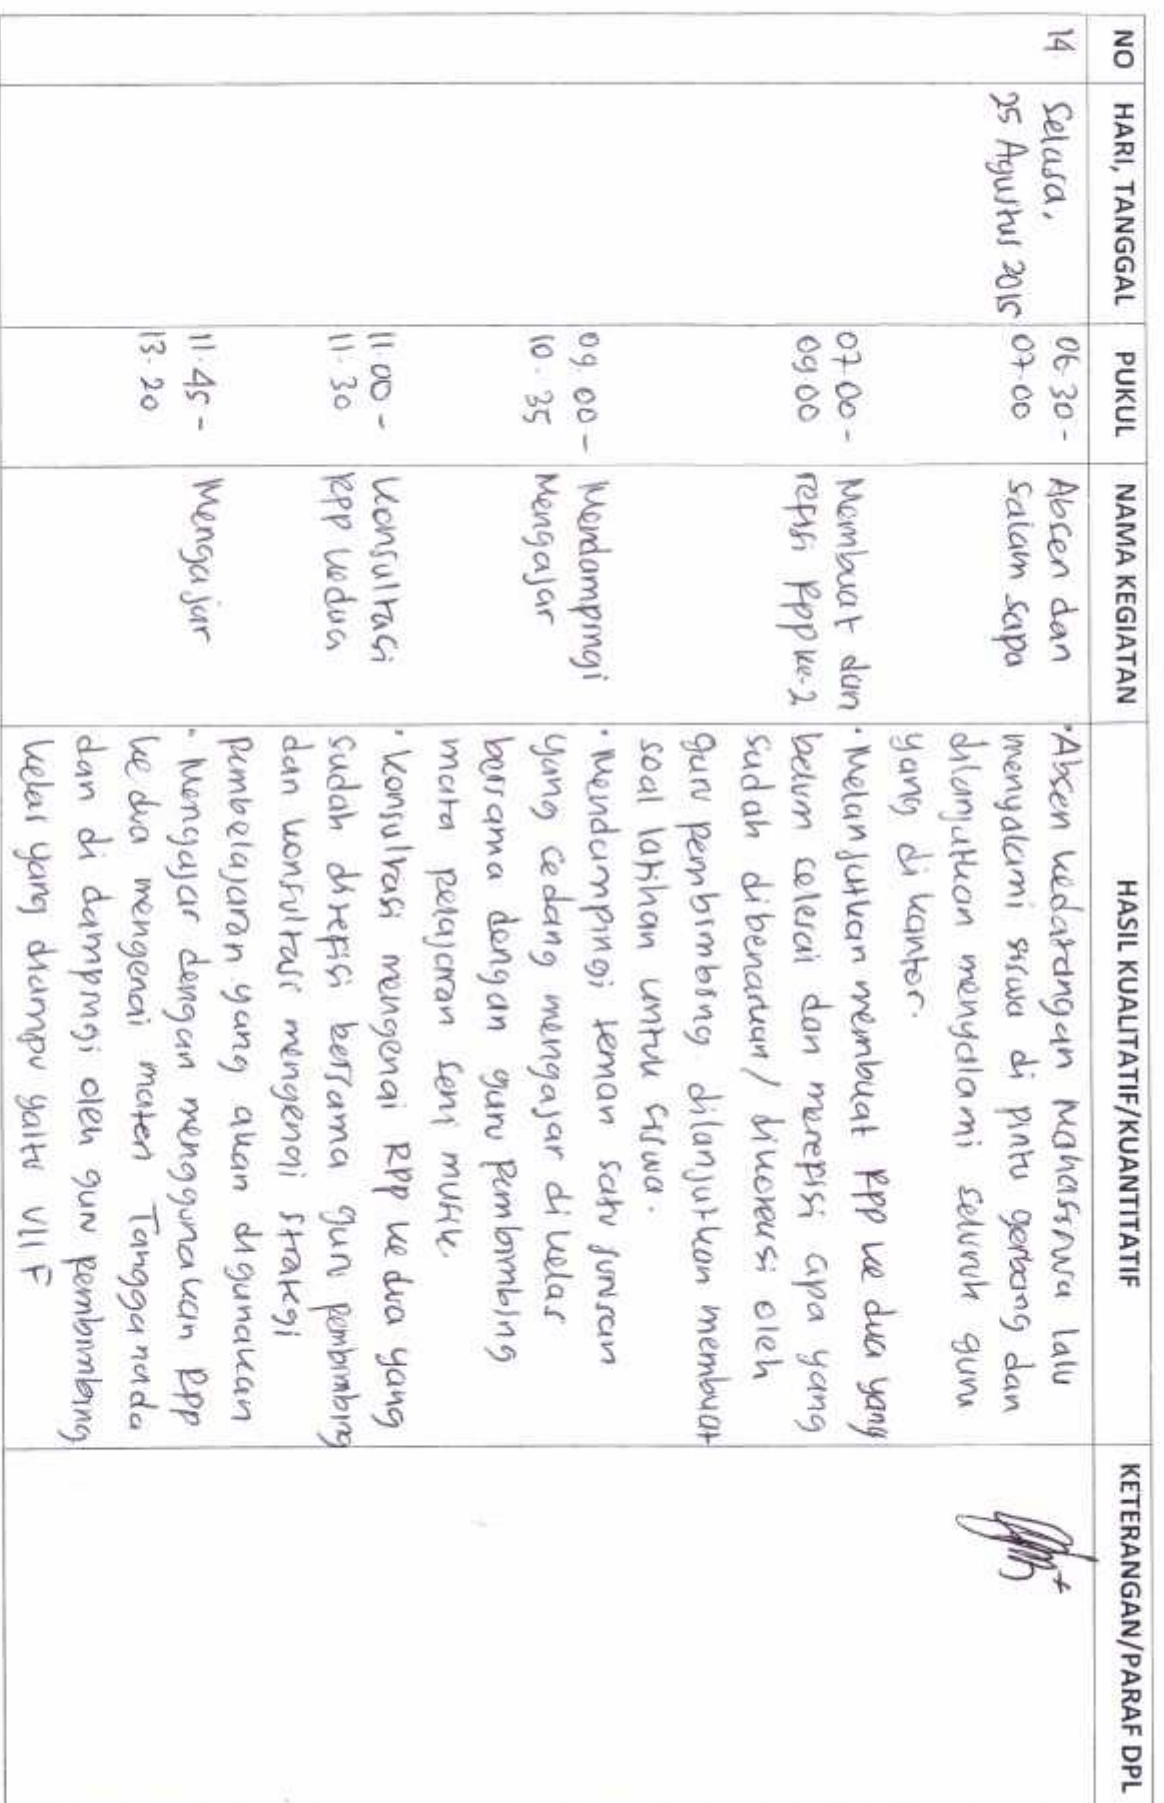 NO HARI, TANGGAL PUKUL NAMA KEGIATAN HASIL KUALITATIF/KUANTITATIF KETERANGAN/PARAF DPL
14 Selasa, 06.30 - Absen dan • Absen kedatangan Mahasiswa lalu
25 Agustus 2015 07.00 salam sapa menyalami siswa di pintu gerbang dan
dilanjutkan menyalami seluruh guru
yang di kantor.
07.00 - Membuat dan • Melanjutkan membuat RPP ke dua yang
09.00 refisi RPP ke-2 belum selesai dan merefisi apa yang
sudah dibenarkan / dikoreksi oleh
guru pembimbing. dilanjutkan membuat
soal latihan untuk siswa.
09.00 - Mendampingi • Mendampingi teman satu jurusan
10.35 Mengajar yang cedang mengajar di kelas
bersama dengan guru pembimbing
mata pelajaran seni musik.
11.00 - Konsultasi • Konsultasi mengenai RPP ke dua yang
11.30 RPP kedua sudah direfisi bersama guru pembimbing
dan konsultasi mengenai strategi
pembelajaran yang akan digunakan
11.45 - Mengajar • Mengajar dengan menggunakan RPP
13.20 ke dua mengenai materi Tangga nada
dan di dampingi oleh guru pembimbing
kelas yang diampu yaitu VIII F